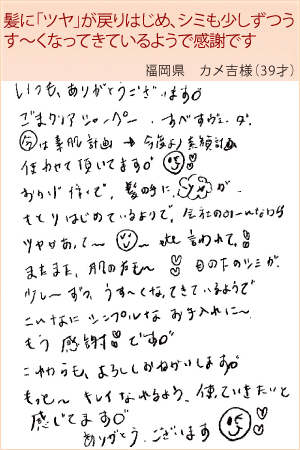 髪に「ツヤ」が戻りはじめ、シミも少しずつう
す〜くなってきているようで感謝です
福岡県 カメ吉様（39才）
いつも、ありがとうございます
ごまクリアシャンプー
今は素肌計画 → 今後よ 素顔計画
使わせて頂いてます
おかげ様で、髪の毛に ツヤ が
もどりはじめているようで、会社の
ツヤがあって〜 etc 言われて
まだまだ、肌の方も〜 目の下のシミが
少し〜ずつ うす〜くなってきているようで
こんなに シンプルな お手入れに〜
もう 感謝 です
これからも、よろしくおねがいします
もっと〜 キレイになれるよう、使っていきたいと
感じてます
ありがとう ございます